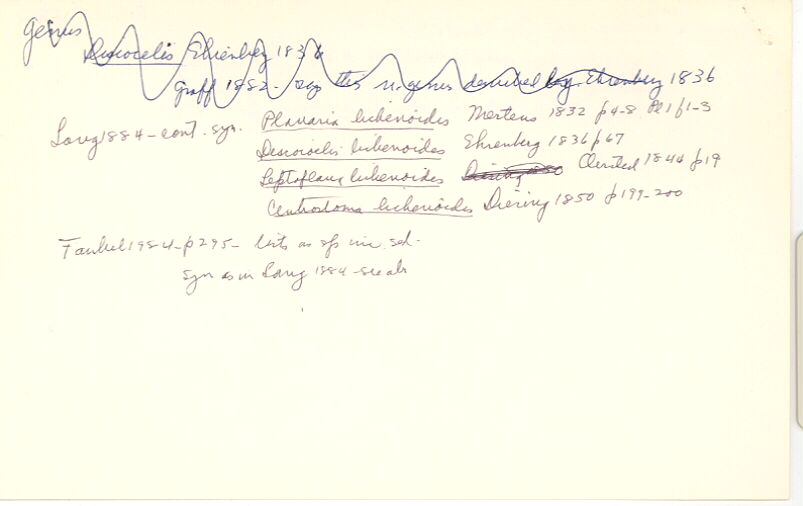 genus
Discocelis Ehrenberg 1836
Graff 1882 - says this n. genus described by Ehrenberg 1836
Lang 1884 - cont. syn. Planaria lichenoides Mertens 1832 p4-8 Pl 1 f1-3
Discocelis lichenoides Ehrenberg 1836 p67
Leptoplana lichenoides Oersted 1844 p19
Centrostoma lichenoides Diesing 1850 p199-200
Faubel 1984 - p295 - lists as sp inc. sd.
Syn as in Lang 1884 - see abv